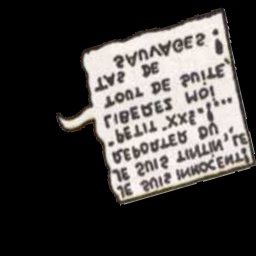 JE SUIS INNOCENT!
JE SUIS TINTIN, LE
REPORTER DU
-PETIT XXE-!...
LIBEREZ MOI
TOUT DE SUITE,
TAS DE
SAUVAGES !